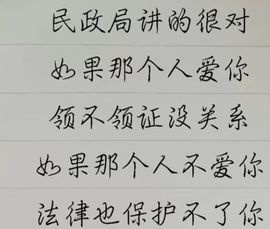 民政局讲的很对
如果那个人爱你
领不领证没关系
如果那个人不爱你
法律也保护不了你